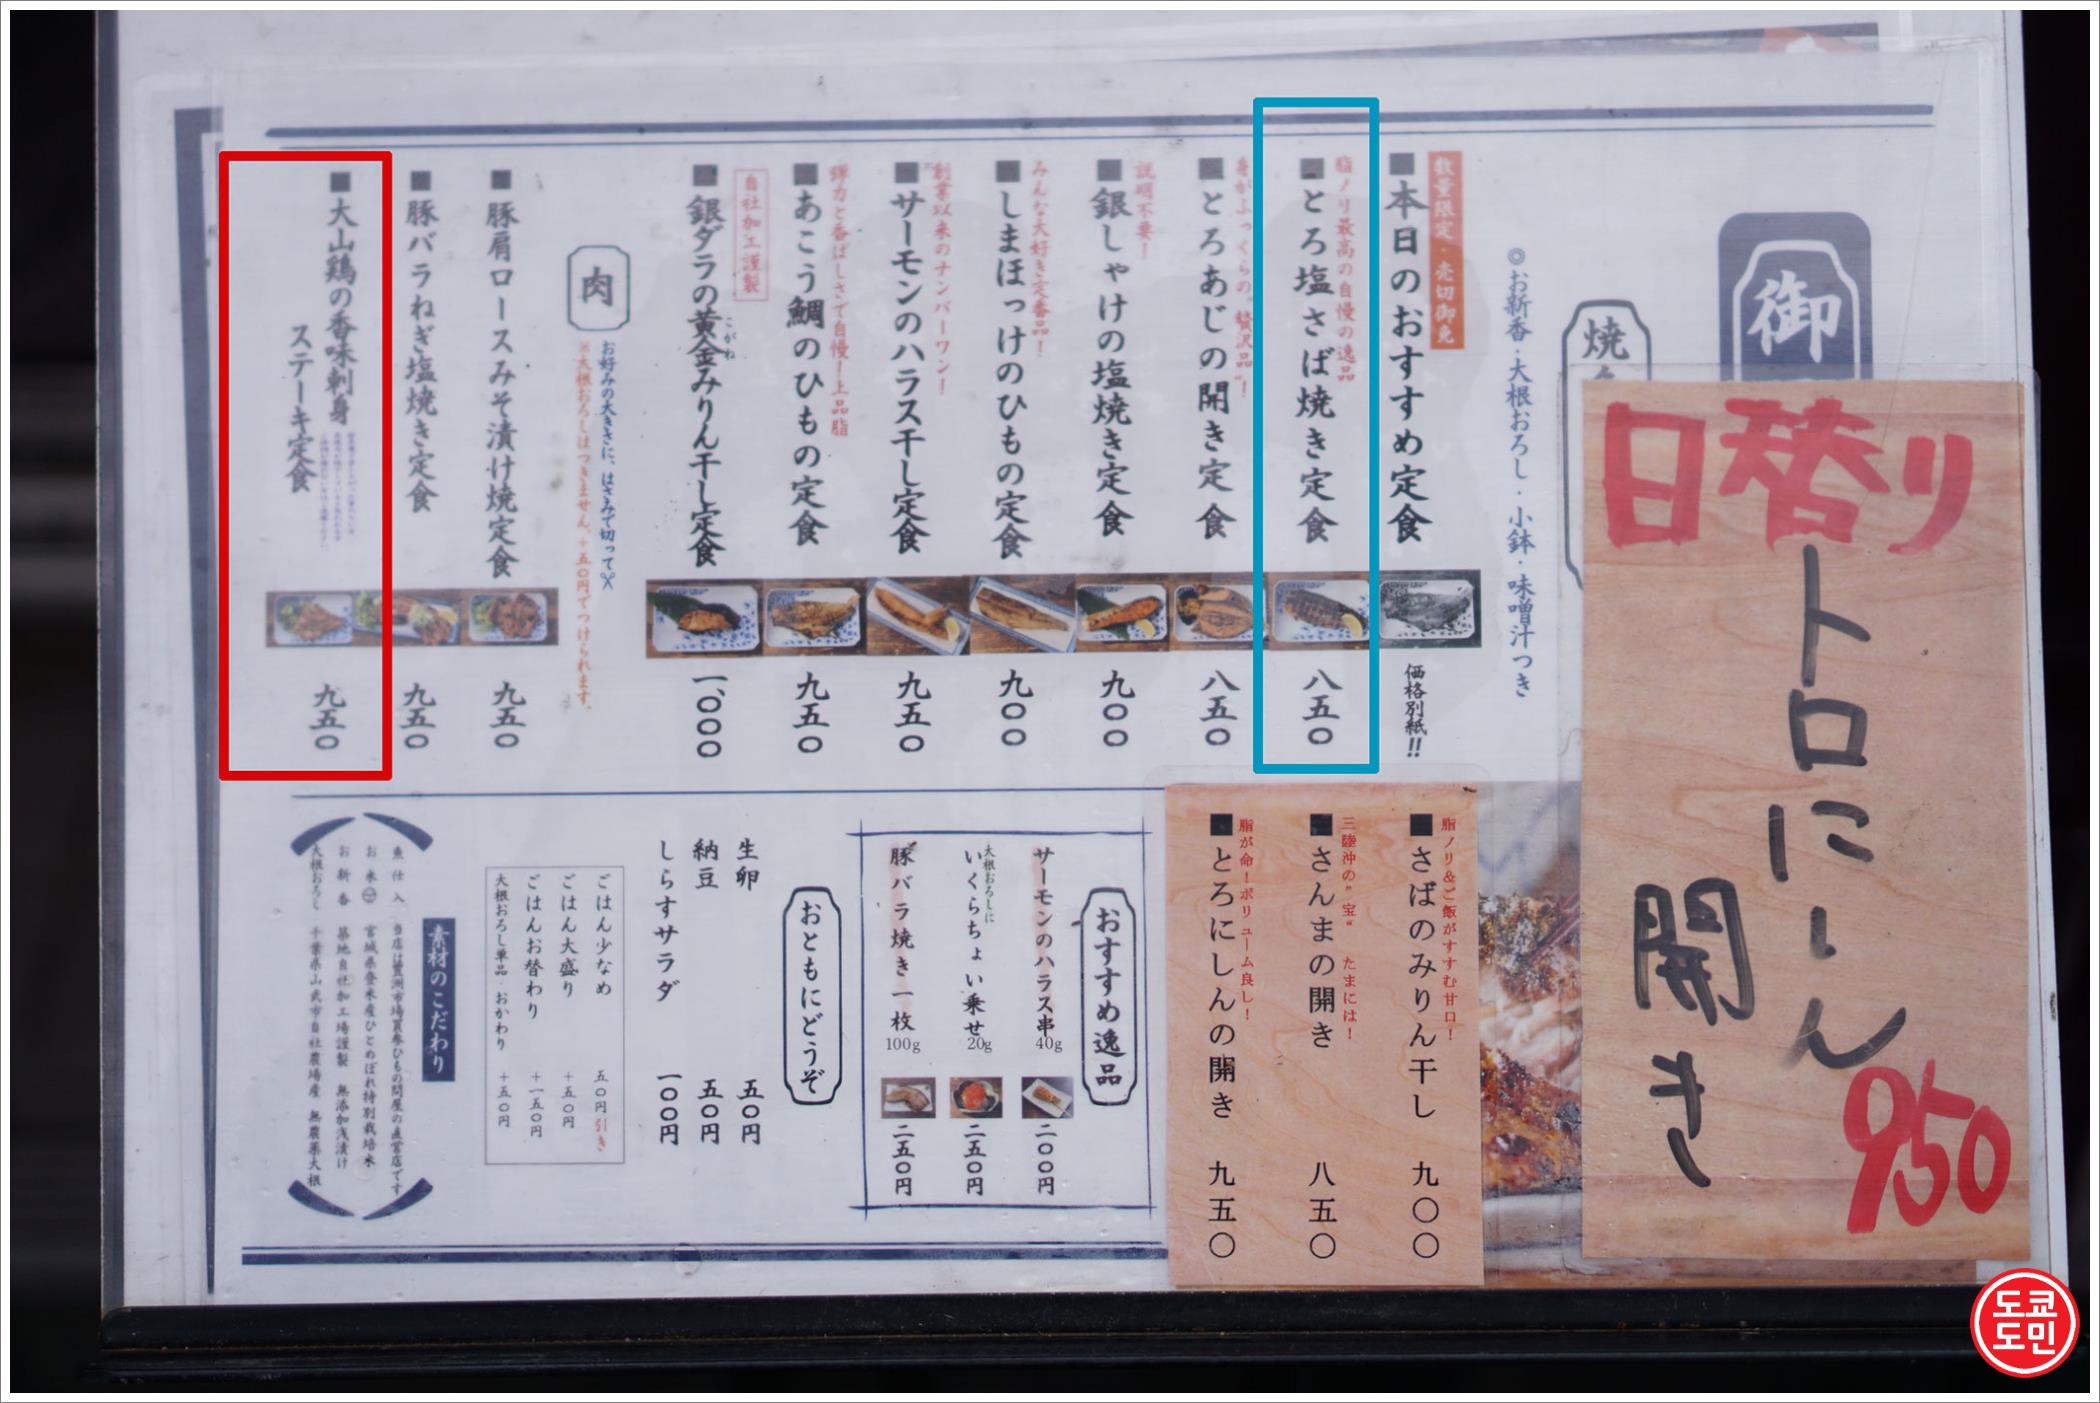 御
焼
◎お新香・大根おろし・小鉢・味噌汁つき
数量限定・売切御免
■本日のおすすめ定食
価格別紙!!
脂ノリ最高の自慢の逸品
■とろ塩さば焼き定食
八五〇
身がふっくらの"贅沢品"!
■とろあじの開き定食
八五〇
説明不要!
■銀しゃけの塩焼き定食
九〇〇
みんな大好き定番品!
■しまほっけのひもの定食
九〇〇
創業以来のナンバーワン!
■サーモンのハラス干し定食
九五〇
弾力と香ばしさで自慢!上品脂
■あこう鯛のひもの定食
九五〇
自社加工謹製
■銀ダラの黄金みりん干し定食
こがね
一、〇〇〇
肉
お好みの大きさに、はさみで切って✂
※大根おろしはつきません。+五〇円でつけられます。
■豚肩ロースみそ漬け焼定食
九五〇
■豚バラねぎ塩焼き定食
九五〇
■大山鶏の香味刺身
ステーキ定食
九五〇
日替り
トロにしん
開き
950
脂ノリ&ご飯がすすむ甘口!
■さばのみりん干し
九〇〇
三陸沖の"宝" たまには!
■さんまの開き
八五〇
脂が命!ボリューム良し!
■とろにしんの開き
九五〇
おすすめ逸品
サーモンのハラス串
40g
二〇〇円
大根おろしに
いくらちょい乗せ
20g
二五〇円
豚バラ焼き一枚
100g
二五〇円
おともにどうぞ
生卵
五〇円
納豆
五〇円
しらすサラダ
一〇〇円
ごはん少なめ 五〇円引き
ごはん大盛り +五〇円
ごはんお替わり +一五〇円
大根おろし単品・おかわり +五〇円
素材のこだわり
魚仕入 当店は豊洲市場買参ひもの問屋の直営店です
お米㊁ 宮城県登米産ひとめぼれ特別栽培米
お新香 築地自社加工場謹製 無添加浅漬け
大根おろし 千葉県山武市自社農場産 無農薬大根
도쿄
도민